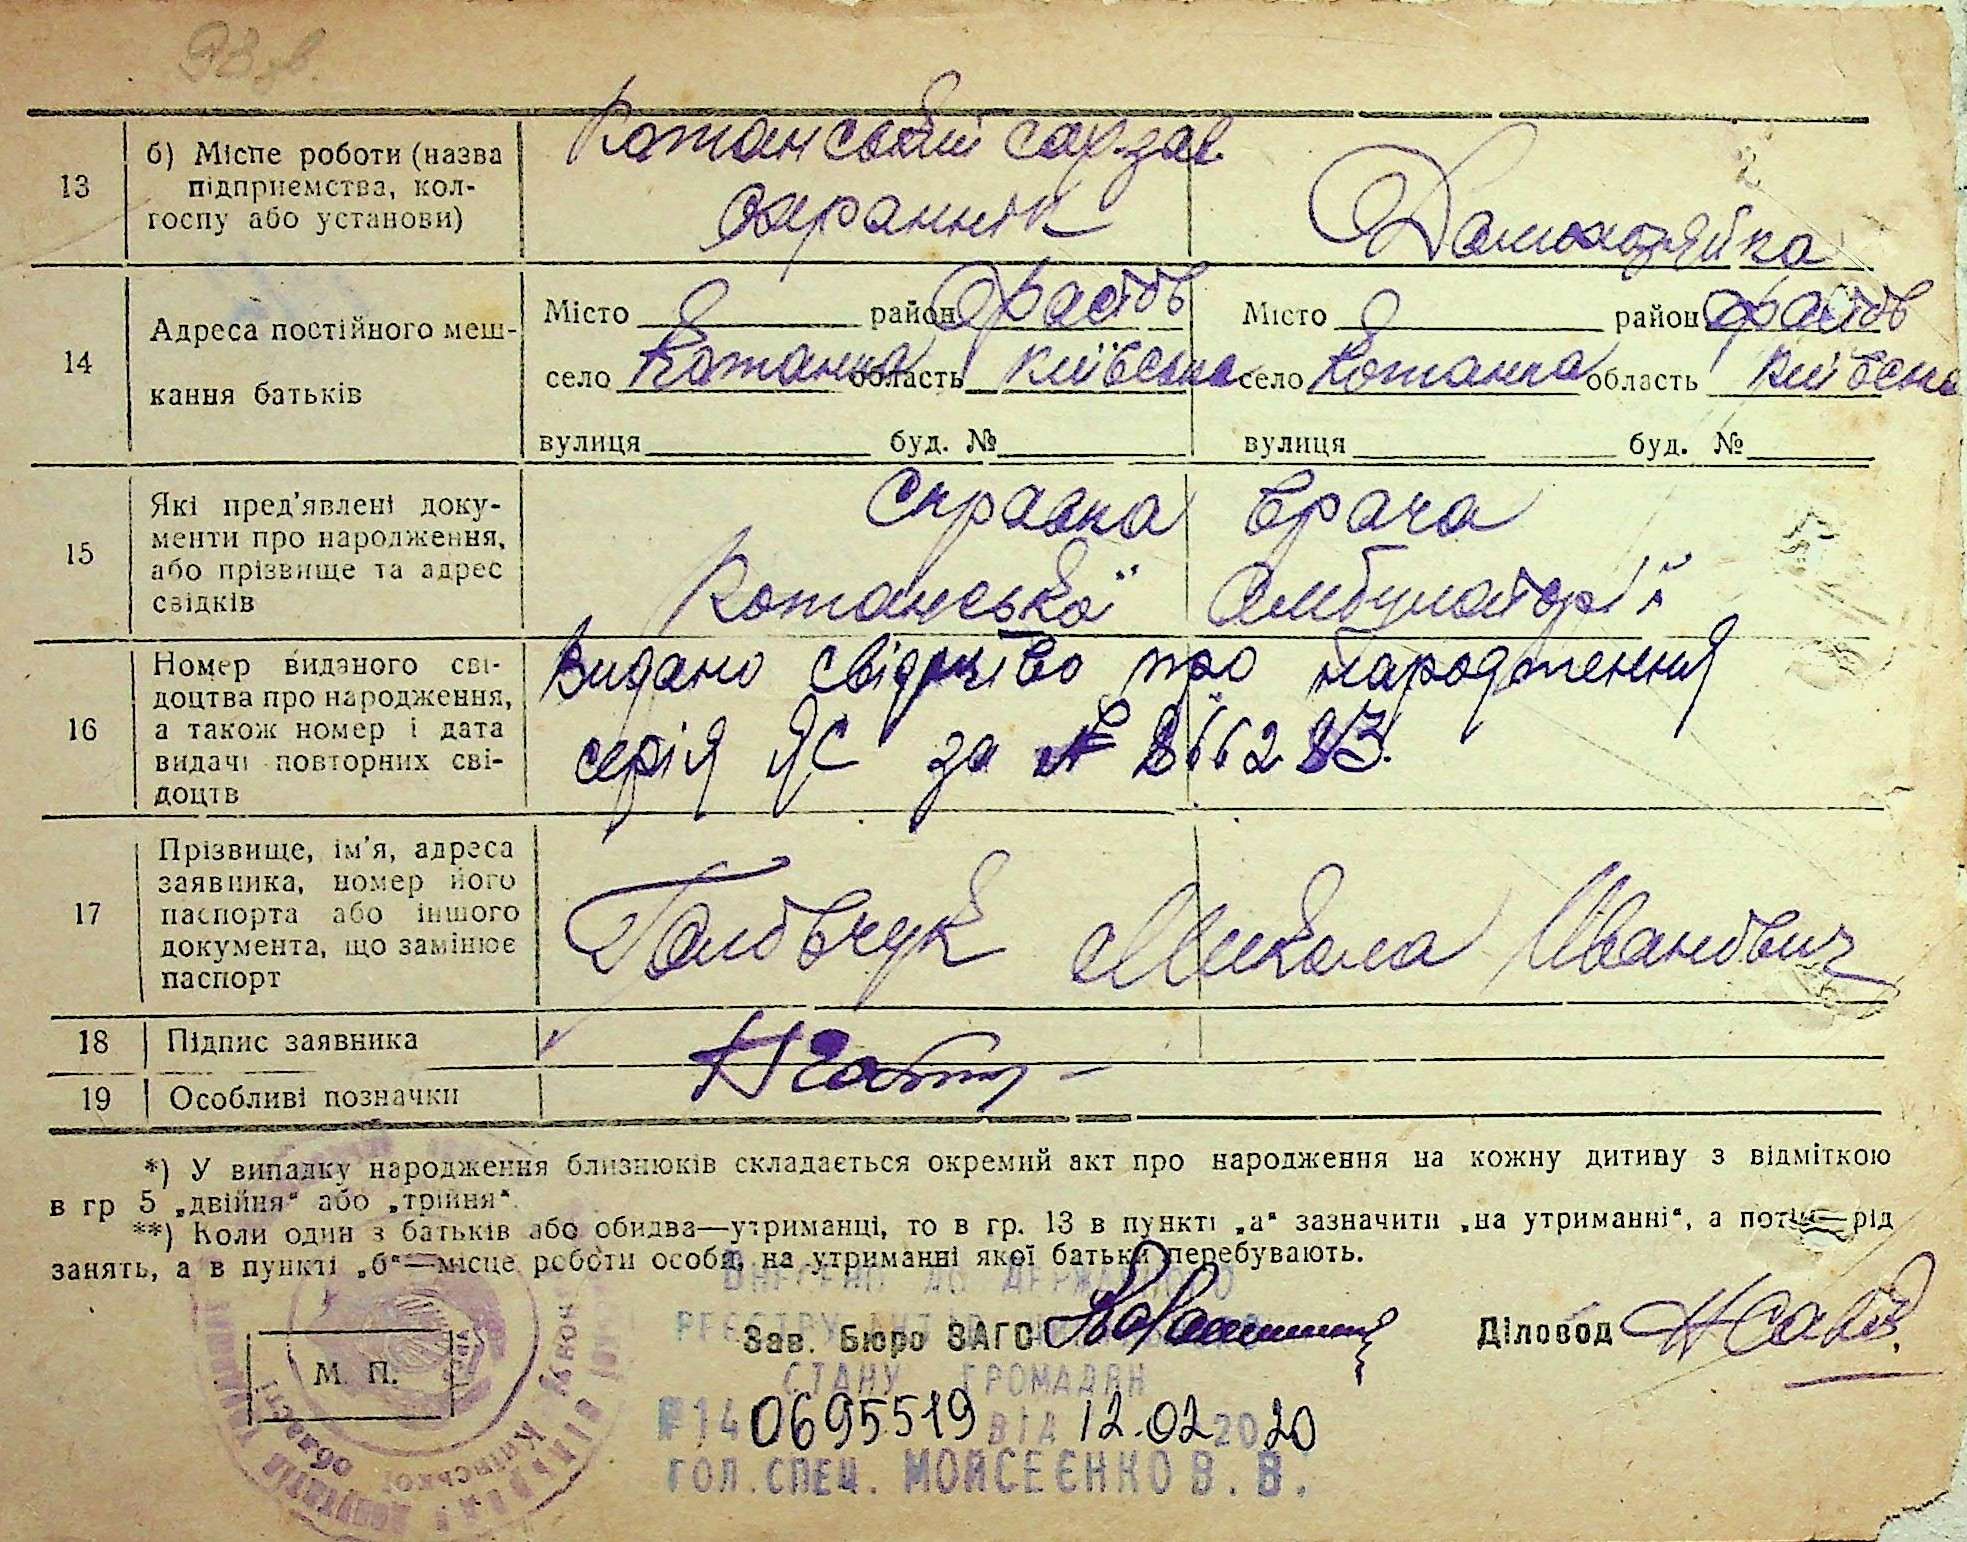 93 зв.
13
б) Місце роботи (назва
підприємства, кол-
госпу або установи)
Кожанський сах-зав.
охраннік
Домохозяйка
14
Адреса постійного меш-
кання батьків
Місто район Фастов
село Кожанка область Київська
вулиця буд. №
Місто район Фастов
село Кожанка область Київська
вулиця буд. №
15
Які пред'явлені доку-
менти про народження,
або прізвище та адрес
свідків
Справка врача
Кожанської амбулаторії
16
Номер виданого сві-
доцтва про народження,
а також номер і дата
видачі повторних сві-
доцтв
Видано свідоцтво про народження
серія ЯС за №
17
Прізвище, ім'я, адреса
заявника, номер його
паспорта або іншого
документа, що замінює
паспорт
Голобчук Микола Иванович
18
Підпис заявника
19
Особливі позначки
*) У випадку народження близнюків складається окремий акт про народження на кожну дитину з відміткою
в гр 5 „двійня“ або „трійня“.
**) Коли один з батьків або обидва—утриманці, то в гр. 13 в пункті „а“ зазначити „на утриманні“, а рід
занять, а в пункті „б“—місце роботи особи, на утриманні якої батьки перебувають.
ВНЕСЕНО ДО ДЕРЖАВНОГО
РЕЄСТРУ АКТІВ
Зав. Бюро ЗАГС
Діловод
СТАНУ ГРОМАДЯН
М. П.
Київської
області
№14 0695519 ВІД 12.02 2020
ГОЛ.СПЕЦ. МОЙСЕЄНКО В.В.